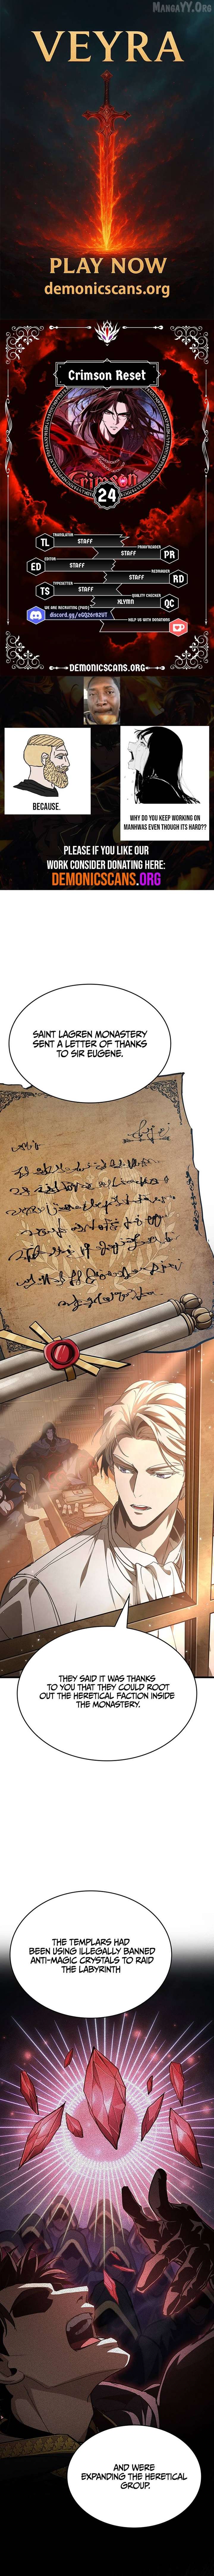 MangaYY.Org
VEYRA
PLAY NOW
demonicscans.org
Crimson Reset
24
TL
TRANSLATOR
STAFF
PROOFREADER
STAFF
PR
ED
EDITOR
STAFF
REDRAWER
STAFF
RD
TS
TYPESETTER
STAFF
QUALITY CHECKER
XLYMN
QC
WE ARE RECRUITING (PAID)
HELP US WITH DONATIONS
DEMONICSCANS.ORG
BECAUSE.
WHY DO YOU KEEP WORKING ON
MANHWAS EVEN THOUGH ITS HARD??
PLEASE IF YOU LIKE OUR
WORK CONSIDER DONATING HERE:
DEMONICSCANS.ORG
SAINT LAGREN MONASTERY
SENT A LETTER OF THANKS
TO SIR EUGENE.
THEY SAID IT WAS THANKS
TO YOU THAT THEY COULD ROOT
OUT THE HERETICAL FACTION INSIDE
THE MONASTERY.
THE TEMPLARS HAD
BEEN USING ILLEGALLY BANNED
ANTI-MAGIC CRYSTALS TO RAID
THE LABYRINTH
AND WERE
EXPANDING THE HERETICAL
GROUP.